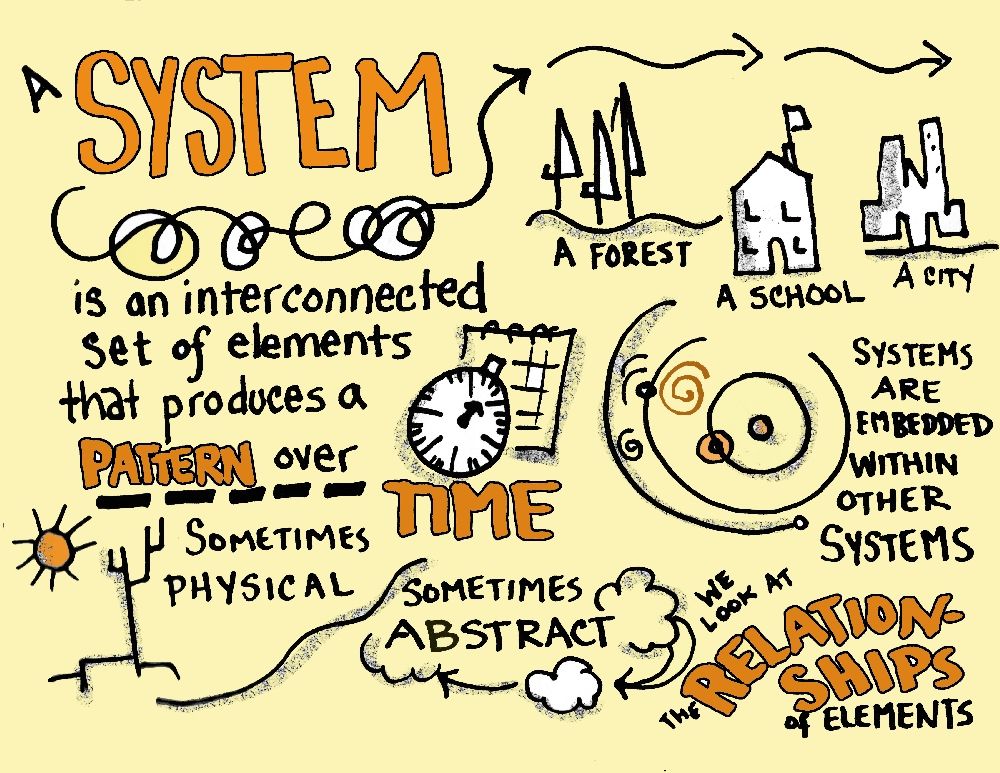 A SYSTEM
is an interconnected
set of elements
that produces a
PATTERN over
TIME
A FOREST
A SCHOOL
A CITY
SYSTEMS
ARE
EMBEDDED
WITHIN
OTHER
SYSTEMS
SOMETIMES
PHYSICAL
SOMETIMES
ABSTRACT
WE
LOOK AT
THE RELATION-
SHIPS
of ELEMENTS